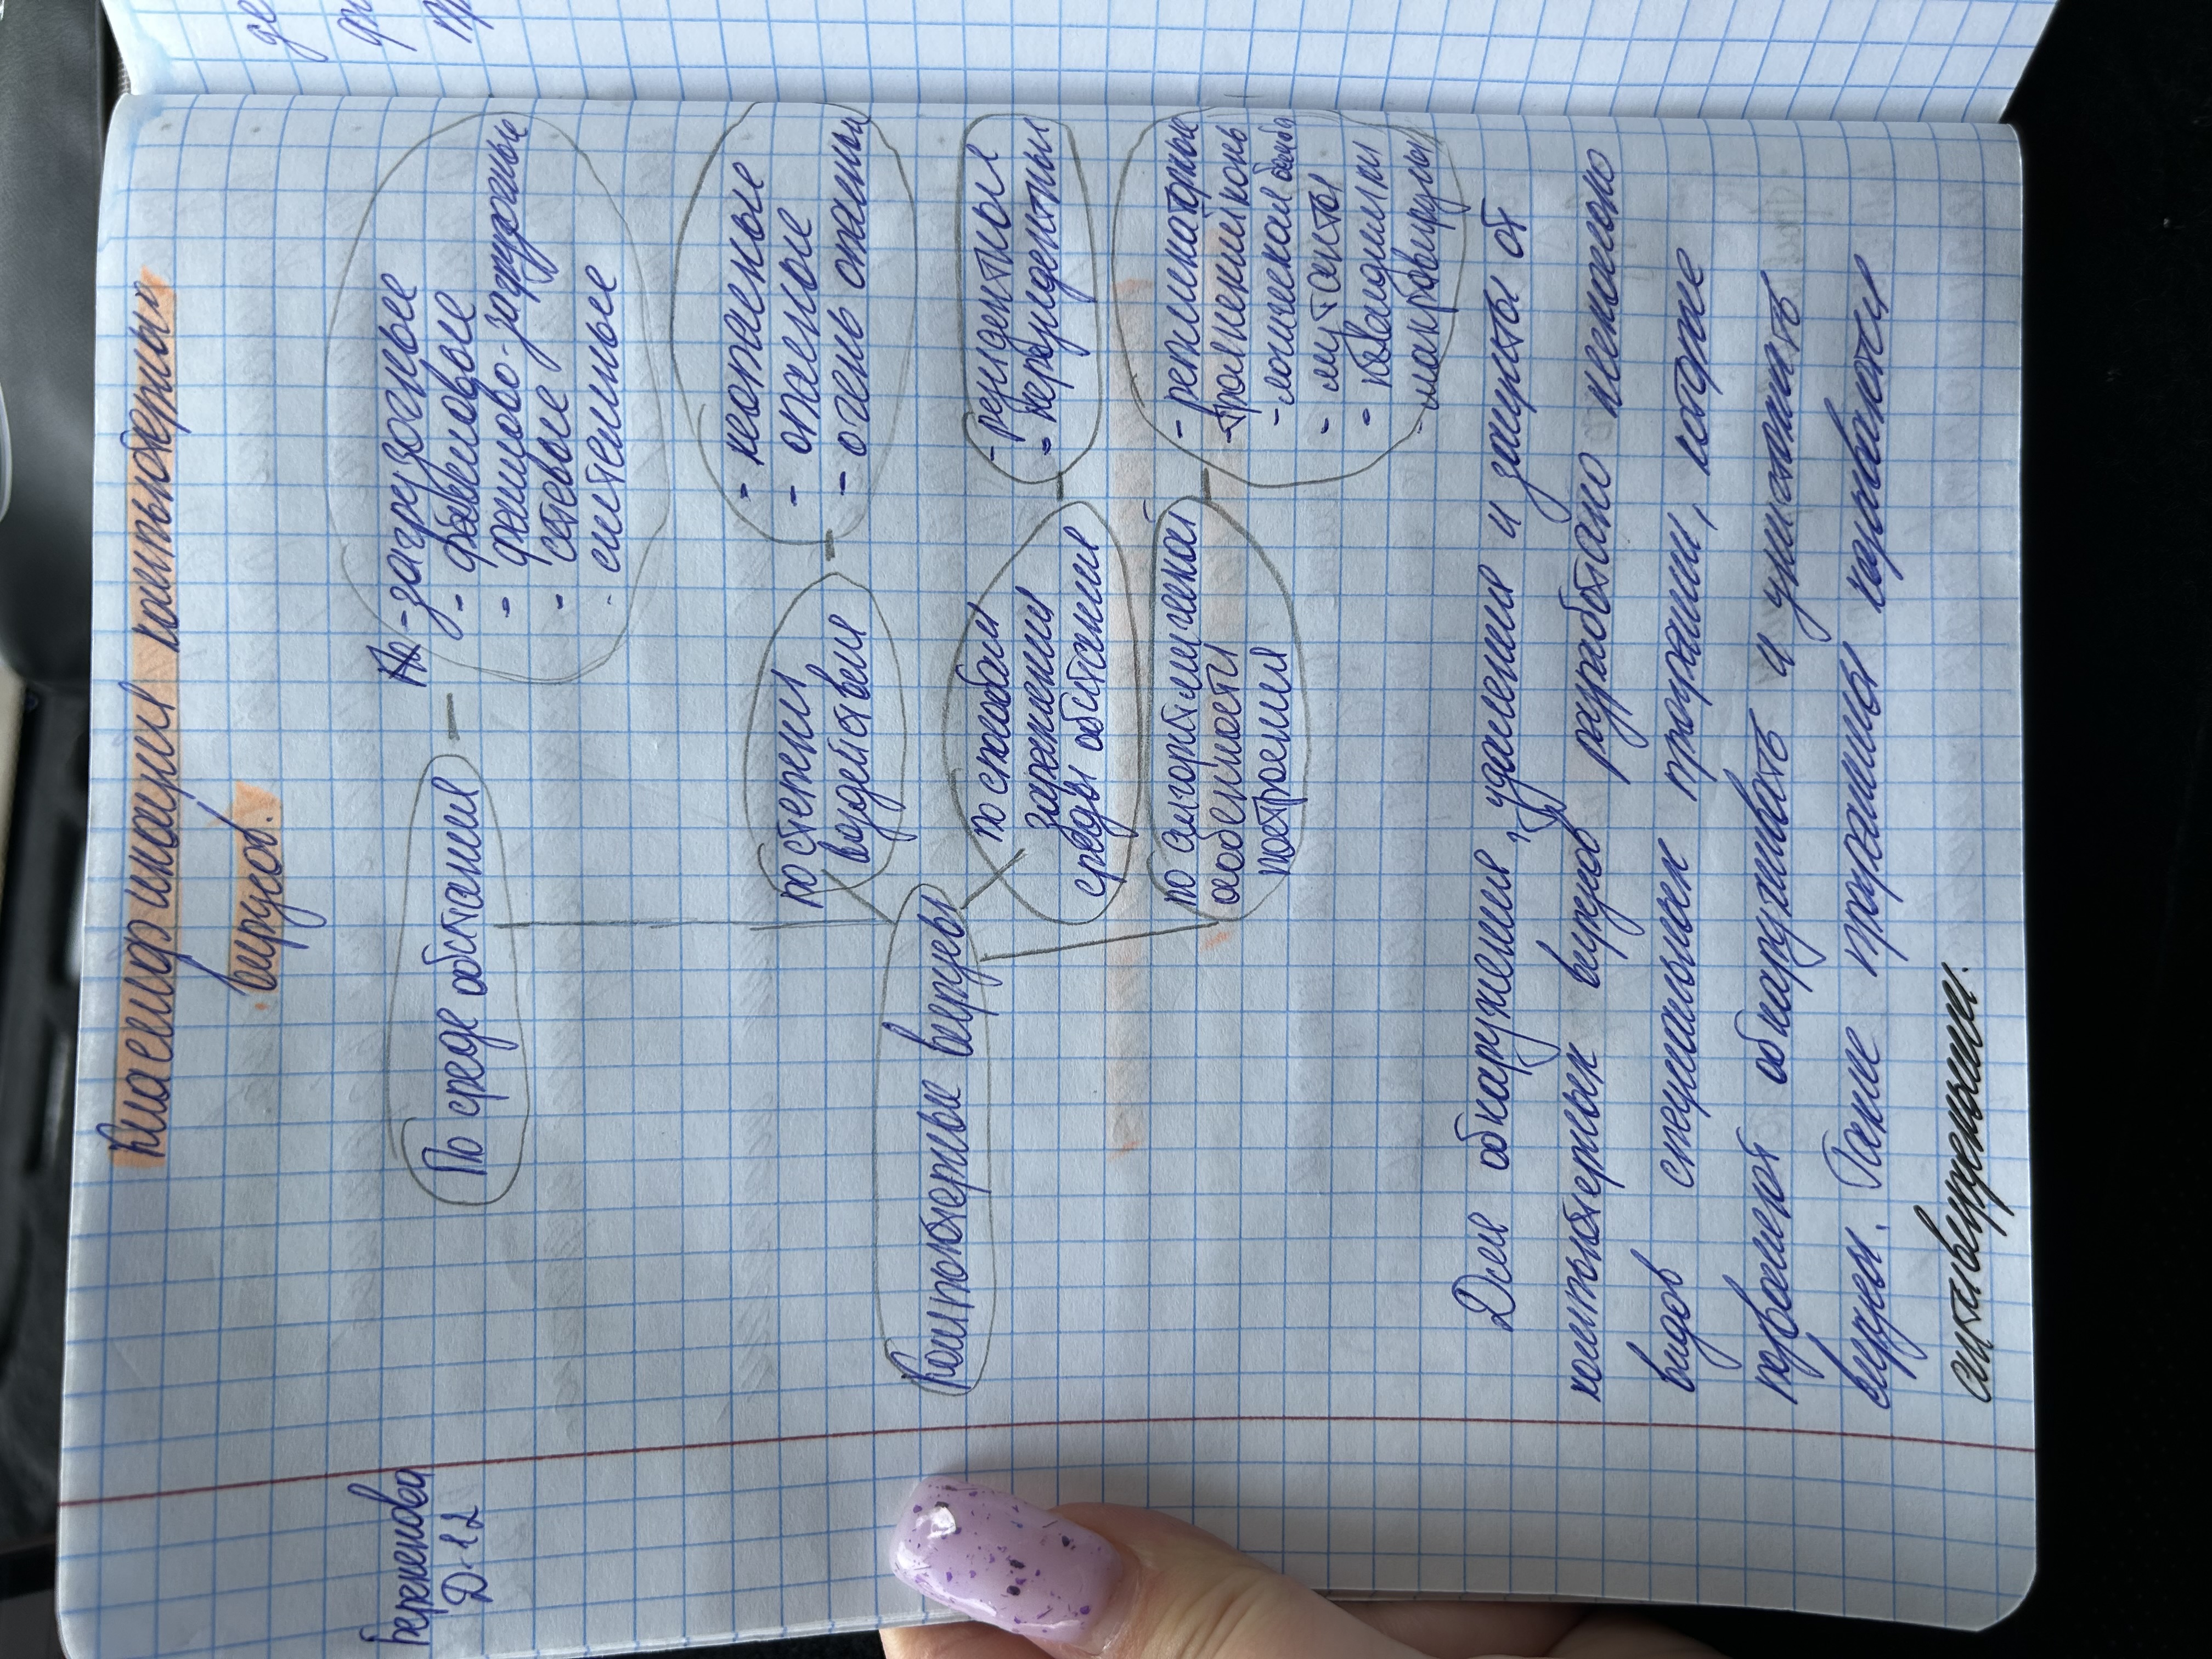 Классификация компьютерных
вирусов.
Береснева
Д-12
По среде обитания
-загрузочные
- файловые
- файлово-загрузочные
- сетевые
- системные
по степени
воздействия
- неопасные
- опасные
- очень опасны
Компьютерные вирусы
по способам
заражения
среды обитания
- резидентные
- нерезидентные
по алгоритмической
особенности
построения
- репликаторные
- троянский конь
- логическая бомба
- мутанты
- невидимки
- макровирусы
Для обнаружения, удаления и защиты от
компьютерных вирусов разработано несколько
видов специальных программ, которые
позволяют обнаруживать и уничтожать
вирусы. Такие программы называются
антивирусными.